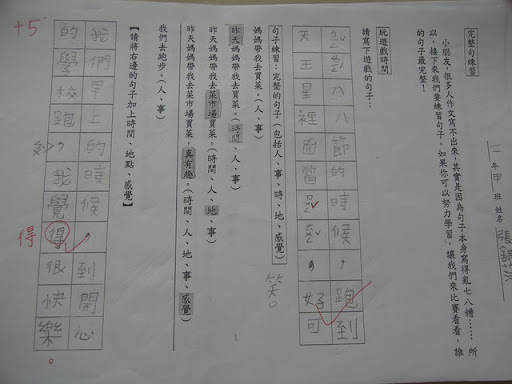 完整句練習
二年甲班 姓名 張
小朋友,很多人作文寫不出來,其實是因為句子本身寫得亂七八糟……所
以,接下來我們要練習句子,如果你可以努力學習,讓我們來比賽看看,誰
的句子最完整!
玩遊戲時間
請寫下遊戲的句子:
八八節的時候,跑到
天王星裡面當,好可
笑。
句子練習:完整的句子(包括人、事、時、地、感覺)
媽媽帶我去買菜。(人、事)
昨天媽媽帶我去買菜。(時間、人、事)
昨天媽媽帶我去菜市場買菜。(時間、人、地、事)
昨天媽媽帶我去菜市場買菜,真有趣。(時間、人、地、事、感覺)
我們去跑步。(人、事)
【請將右邊的句子加上時間、地點、感覺】
我們早上的時候,到開心
的學校跑步,我覺得很快樂。
得
+5